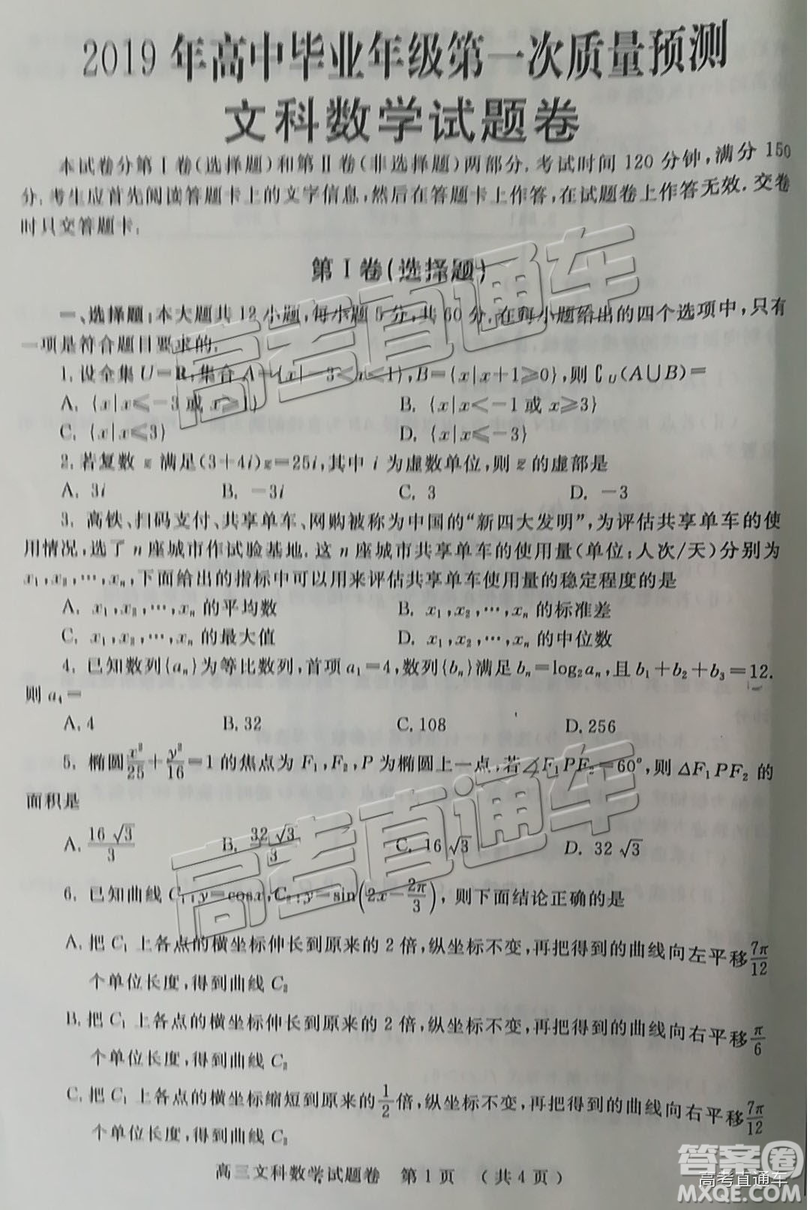 2019 年高中毕业年级第一次质量预测
文科数学试题卷
本试卷分第Ⅰ卷(选择题)和第Ⅱ卷(非选择题)两部分.考试时间120分钟,满分150
分.考生应首先阅读答题卡上的文字信息,然后在答题卡上作答,在试题卷上作答无效.交卷
时只交答题卡.
第Ⅰ卷(选择题)
一、选择题:本大题共12小题,每小题5分,共60分.在每小题给出的四个选项中,只有
一项是符合题目要求的.
1.设全集U=R,集合A={x|-3<x<1},B={x|x+1≥0},则∁U(A∪B)=
A. {x|x≤-3或x≥1} B. {x|x<-1或x≥3}
C. {x|x≤3} D. {x|x≤-3}
2.若复数z满足(3+4i)z=25i,其中i为虚数单位,则z的虚部是
A. 3i B. -3i C. 3 D. -3
3. 高铁、扫码支付、共享单车、网购被称为中国的“新四大发明”,为评估共享单车的使
用情况,选了n座城市作试验基地.这n座城市共享单车的使用量(单位:人次/天)分别为
x₁,x₂,…,xₙ,下面给出的指标中可以用来评估共享单车使用量的稳定程度的是
A. x₁,x₂,…,xₙ的平均数 B. x₁,x₂,…,xₙ的标准差
C. x₁,x₂,…,xₙ的最大值 D. x₁,x₂,…,xₙ的中位数
4. 已知数列{aₙ}为等比数列,首项a₁=4,数列{bₙ}满足bₙ=log₂aₙ,且b₁+b₂+b₃=12.
则a₄=
A. 4 B. 32 C. 108 D. 256
5. 椭圆x²/25+y²/16=1的焦点为F₁,F₂,P为椭圆上一点,若∠F₁PF₂=60°,则△F₁PF₂的
面积是
A. 16√3/3 B. 32√3/3 C. 16√3 D. 32√3
6. 已知曲线C₁:y=cosx,C₂:y=sin(2x-2π/3),则下面结论正确的是
A. 把C₁上各点的横坐标伸长到原来的2倍,纵坐标不变,再把得到的曲线向左平移7π/12
个单位长度,得到曲线C₂
B. 把C₁上各点的横坐标伸长到原来的2倍,纵坐标不变,再把得到的曲线向右平移π/6
个单位长度,得到曲线C₂
C. 把C₁上各点的横坐标缩短到原来的1/2倍,纵坐标不变,再把得到的曲线向右平移7π/12
个单位长度,得到曲线C₂
高三文科数学试题卷 第1页 (共4页)
高考直通车
高考直通车
答案卷
高考直通车
MXQE.COM